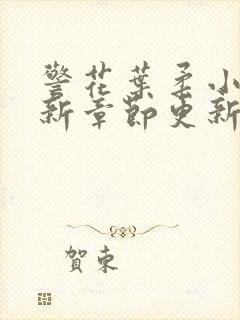 警花葉柔小
新章節更新
賀東